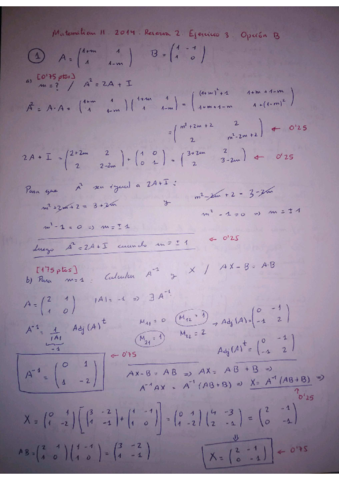 Matemáticas II 2014 Reserva 2 Ejercicio 3 Opción B
1 A = (1+m 1 / 1 1-m) B = (1 -1 / 1 0)
[0'75 ptos]
a) m = ? / A² = 2A + I
A² = A·A = (1+m 1 / 1 1-m)(1+m 1 / 1 1-m) = ((1+m)²+1 1+m+1-m / 1+m+1-m 1+(1-m)²)
= (m²+2m+2 2 / 2 m²-2m+2) ← 0'25
2A + I = (2+2m 2 / 2 2-2m) + (1 0 / 0 1) = (3+2m 2 / 2 3-2m) ← 0'25
Para que A² sea igual a 2A+I:
m²+2m+2 = 3+2m y m²-2m+2 = 3-2m
m²-1=0 ⇒ m=±1 y m²-1=0 ⇒ m=±1
Luego A² = 2A+I cuando m=±1 ← 0'25
[1'75 ptos]
b) Para m=1 Calcular A⁻¹ y X / AX-B = AB
A = (2 1 / 1 0) |A| = -1 ⇒ ∃ A⁻¹
A⁻¹ = 1/|A| Adj(A)ᵗ M₁₁ = 0 M₁₂ = 1 M₂₁ = 1 M₂₂ = 2 → Adj(A) = (0 -1 / -1 2)
-1
Adj(A)ᵗ = (0 -1 / -1 2)
A⁻¹ = (0 1 / 1 -2) ← 0'75
AX-B = AB ⇒ AX = AB + B ⇒
A⁻¹AX = A⁻¹(AB+B) ⇒ X = A⁻¹(AB+B) ⇒
0'25
X = (0 1 / 1 -2)[(3 -2 / 1 -1) + (1 -1 / 1 0)] = (0 1 / 1 -2)(4 -3 / 2 -1) = (2 -1 / 0 -1)
AB = (2 1 / 1 0)(1 -1 / 1 0) = (3 -2 / 1 -1)
X = (2 -1 / 0 -1) ← 0'75